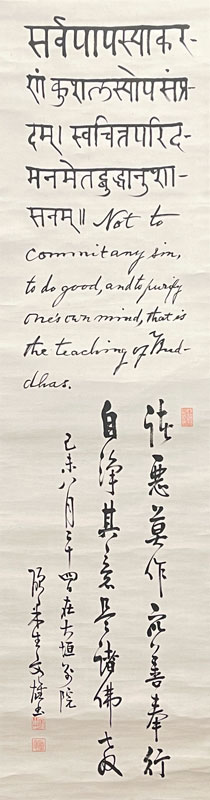 सर्वपापस्याकर-
णं कुशलस्योपसंप्र-
दम्। स्वचित्तपरिद-
मनमेतद्बुद्धानुशा-
सनम्॥ Not to
commit any sin,
to do good, and to purify
one's own mind, that is
the teaching of Bud-
dhas.
諸惡莫作衆善奉行
自淨其意是諸佛教
己未八月三十四在大垣別院
文雄